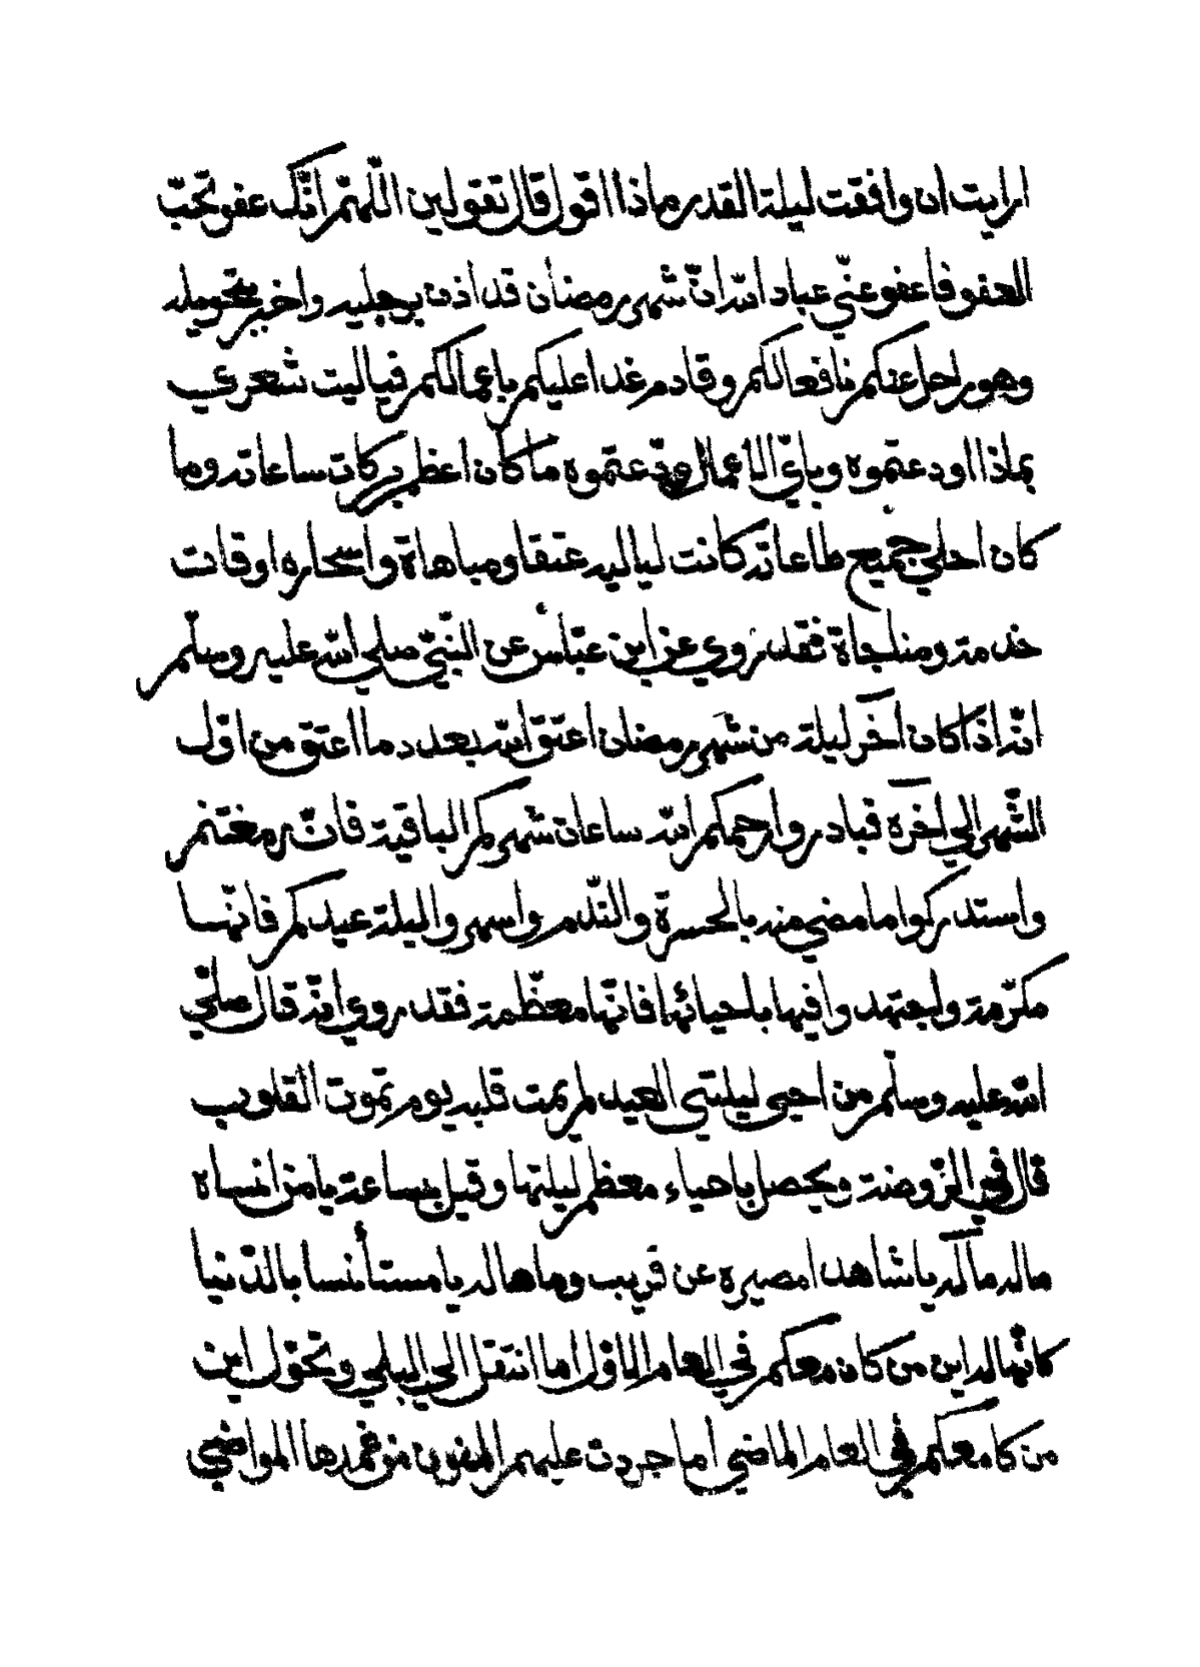 ارايت ان وافقت ليلة القدر ماذا اقول قال تقولين اللّهمّ انّك عفو تحبّ
العفو فأعفو عنّي عباد الله انّ شهر رمضان قد اذن برحليه واخبر بتحويله
وهو راحل عنكم نافعالكم وقادم غدا عليكم باعمالكم فياليت شعري
بماذا اودعتموه وبايّ الأعمال ودّعتموه ما كان اعظم بركات ساعاته وما
كان احلي جميع طاعاته كانت لياليه عتقا ومباهاة واسحاره اوقات
خدمته ومناجاة فقد روي عن ابن عبّاس عن النبيّ صلي الله عليه وسلّم
انّه اذا كان آخر ليلة من شهر رمضان اعتق الله بعدد ما اعتق من اوّل
الشّهر الي آخره فبادروا رحمكم الله ساعات شهركم الباقية فانّه مغتنم
واستدركوا ما مضي منه بالحسرة والنّدم واسهروا ليلة عيدكم فانّها
مكرّمة واجتهدوا فيها باحيائها فانّها معظّمة فقد روي انّه قال صلّي
الله عليه وسلّم من احيى ليلتي العيد لم يمت قلبه يوم تموت القلوب
قال في الرّوضة ويحصل باحياء معظم ليلتها وقيل بساعة يا من انساه
ماله مآله يا شاهدا مصيره عن قريب وماهاله يا مستأنسا بالدّنيا
كانّها له اين من كان معكم في العام الاوّل اما انتقل الي البلي وتحوّل اين
من كا معكم في العام الماضي أما جردت عليهم المنون من غمدها المواضي